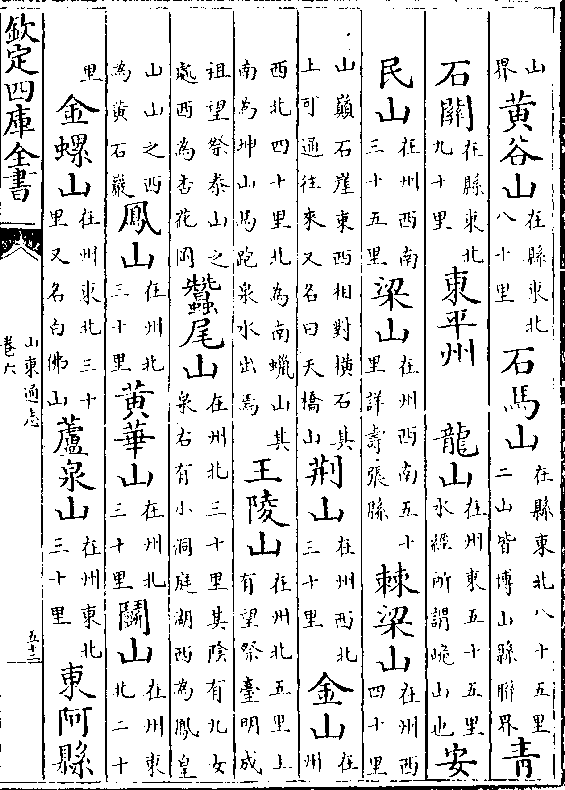 山界黄谷山在縣東北八十里石馬山在縣東北八十五里二山皆博山縣聯界青
石關在縣東北九十里東平州龍山在州東五十五里水經所謂峗山也安
民山在州西南三十五里梁山在州西南五十里詳壽張縣棘梁山在州西四十里
山巔石崖東西相對橫石其上可通往來又名曰天橋山荆山在州西北三十里金山在州
西北四十里北為南蠟山其南為坤山馬跑泉水出焉王陵山在州北五里上有望祭臺明成
祖望祭泰山之處西為杏花岡蠶尾山在州北三十里其陰有九女泉右有小洞庭湖西為鳳皇
山山之西為黄石巖鳳山在州北三十里黄華山在州北三十里關山在州東北二十
里金螺山在州東北三十里又名白佛山蘆泉山在州東北三十里東阿縣
欽定四庫全書
山東通志
卷六
五十三